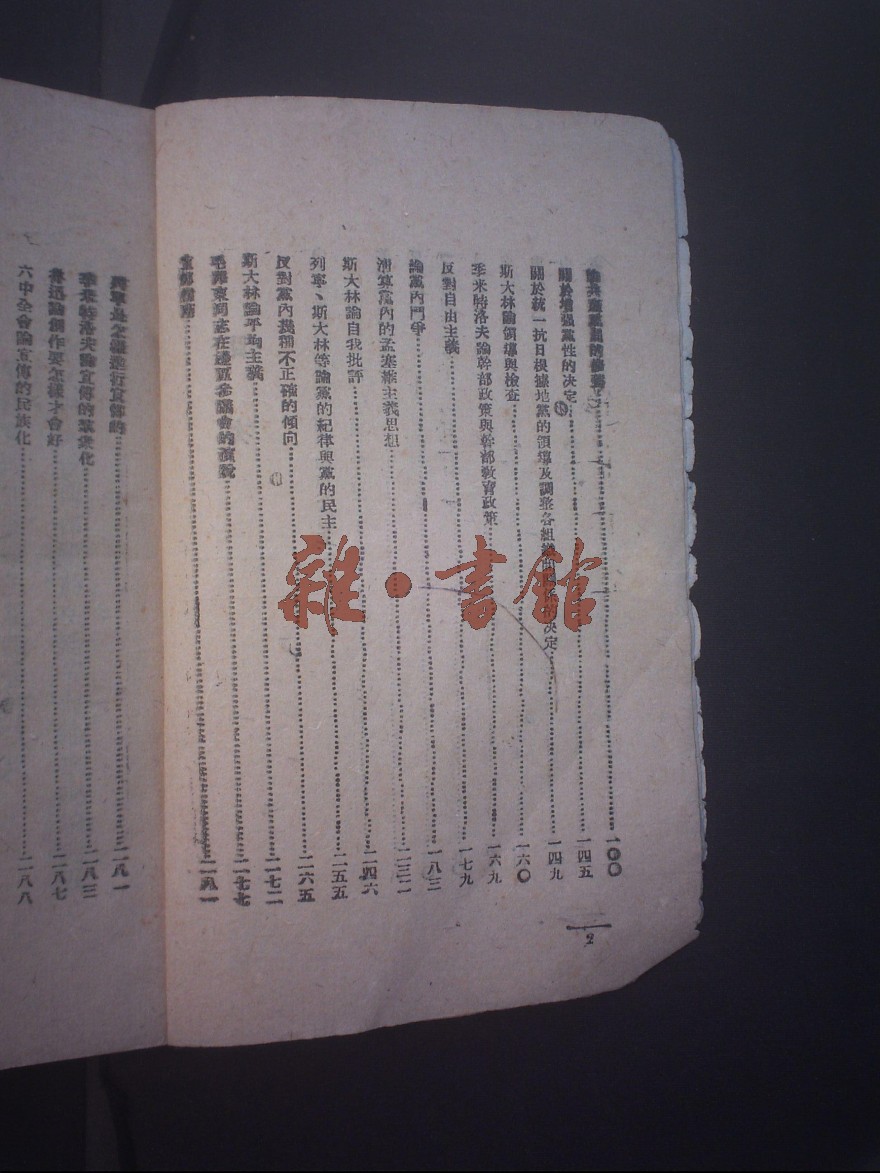 論共產黨員的修養……一〇〇
關於增强黨性的决定……一四五
關於統一抗日根據地黨的領導及調整各組織間關係的决定……一四九
斯大林論領導與檢查……一六〇
季米特洛夫論幹部政策與幹部敎育政策……一六九
反對自由主義……一七九
論黨內鬥爭……一八三
淸算黨內的孟塞維主義思想……二三二
斯大林論自我批評……二四六
列寧、斯大林等論黨的紀律與黨的民主……二五五
反對黨內機種不正確的傾向……二六五
斯大林論平均主義……二七二
毛澤東同志在邊區參議會的演說……二七七
宣傳指南……二八一
列寧是怎樣進行宣傳的……二八一
季米特洛夫論宣傳的羣衆化……二八三
魯迅論創作要怎樣才會好……二八七
六中全會論宣傳的民族化……二八八
2
雜·書館